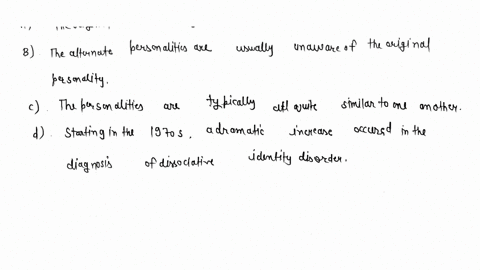 B) The alternate personalities are usually unaware of the original
personality.
c) The personalities are typically all quite similar to one another.
d) Starting in the 1970s, a dramatic increase occured in the
diagnosis of dissociative identity disorder.